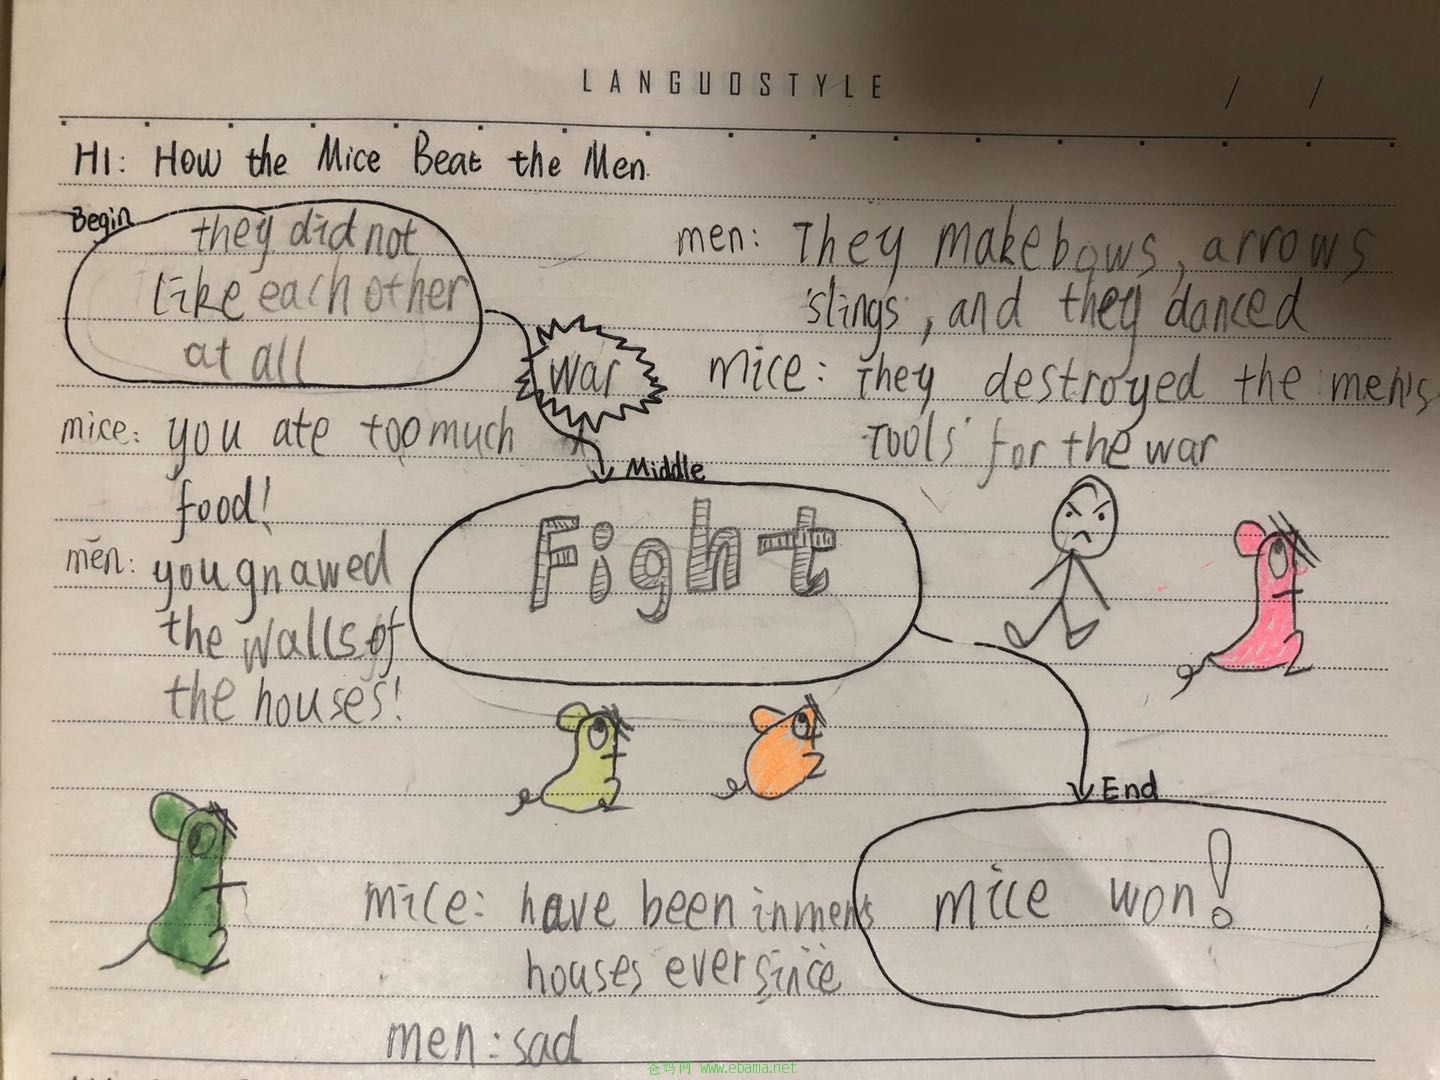 LANGUOSTYLE
/ /
H1: How the Mice Beat the Men
Begin
they did not
like each other
at all
war
mice: you ate too much
food!
men: you gnawed
the walls of
the houses!
men: They make bows, arrows
slings, and they danced
mice: They destroyed the men's
Tools for the war
Middle
Fight
End
mice won!
mice: have been in men's
houses ever since
men: sad
爸妈网 www.ebama.net